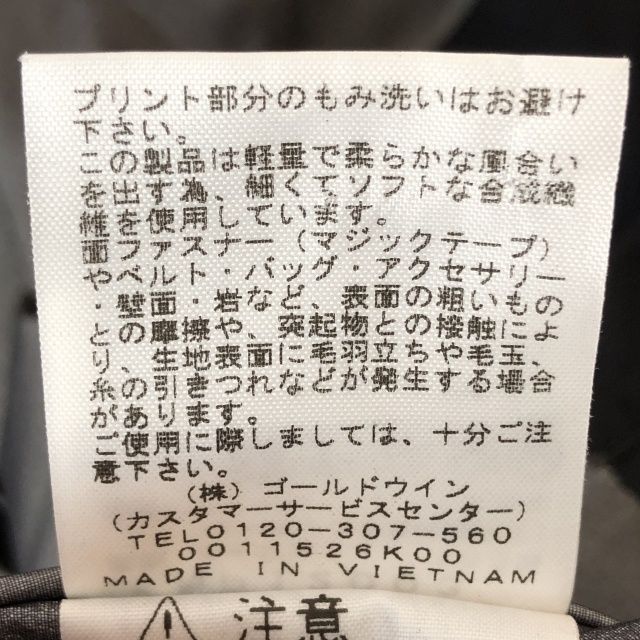 プリント部分のもみ洗いはお避け
下さい。
この製品は軽量で柔らかな風合い
を出す為、細くてソフトな合成繊
維を使用しています。
面ファスナー(マジックテープ)
や、ベルト・バッグ・アクセサリー
・壁面・岩など、表面の粗いもの
との摩擦や、突起物との接触によ
り、生地表面に毛羽立ちや毛玉、
糸の引きつれなどが発生する場合
があります。
ご使用に際しましては、十分ご注
意下さい。
(株)ゴールドウイン
(カスタマーサービスセンター)
TEL0120-307-560
0011526K00
MADE IN VIETNAM
注意